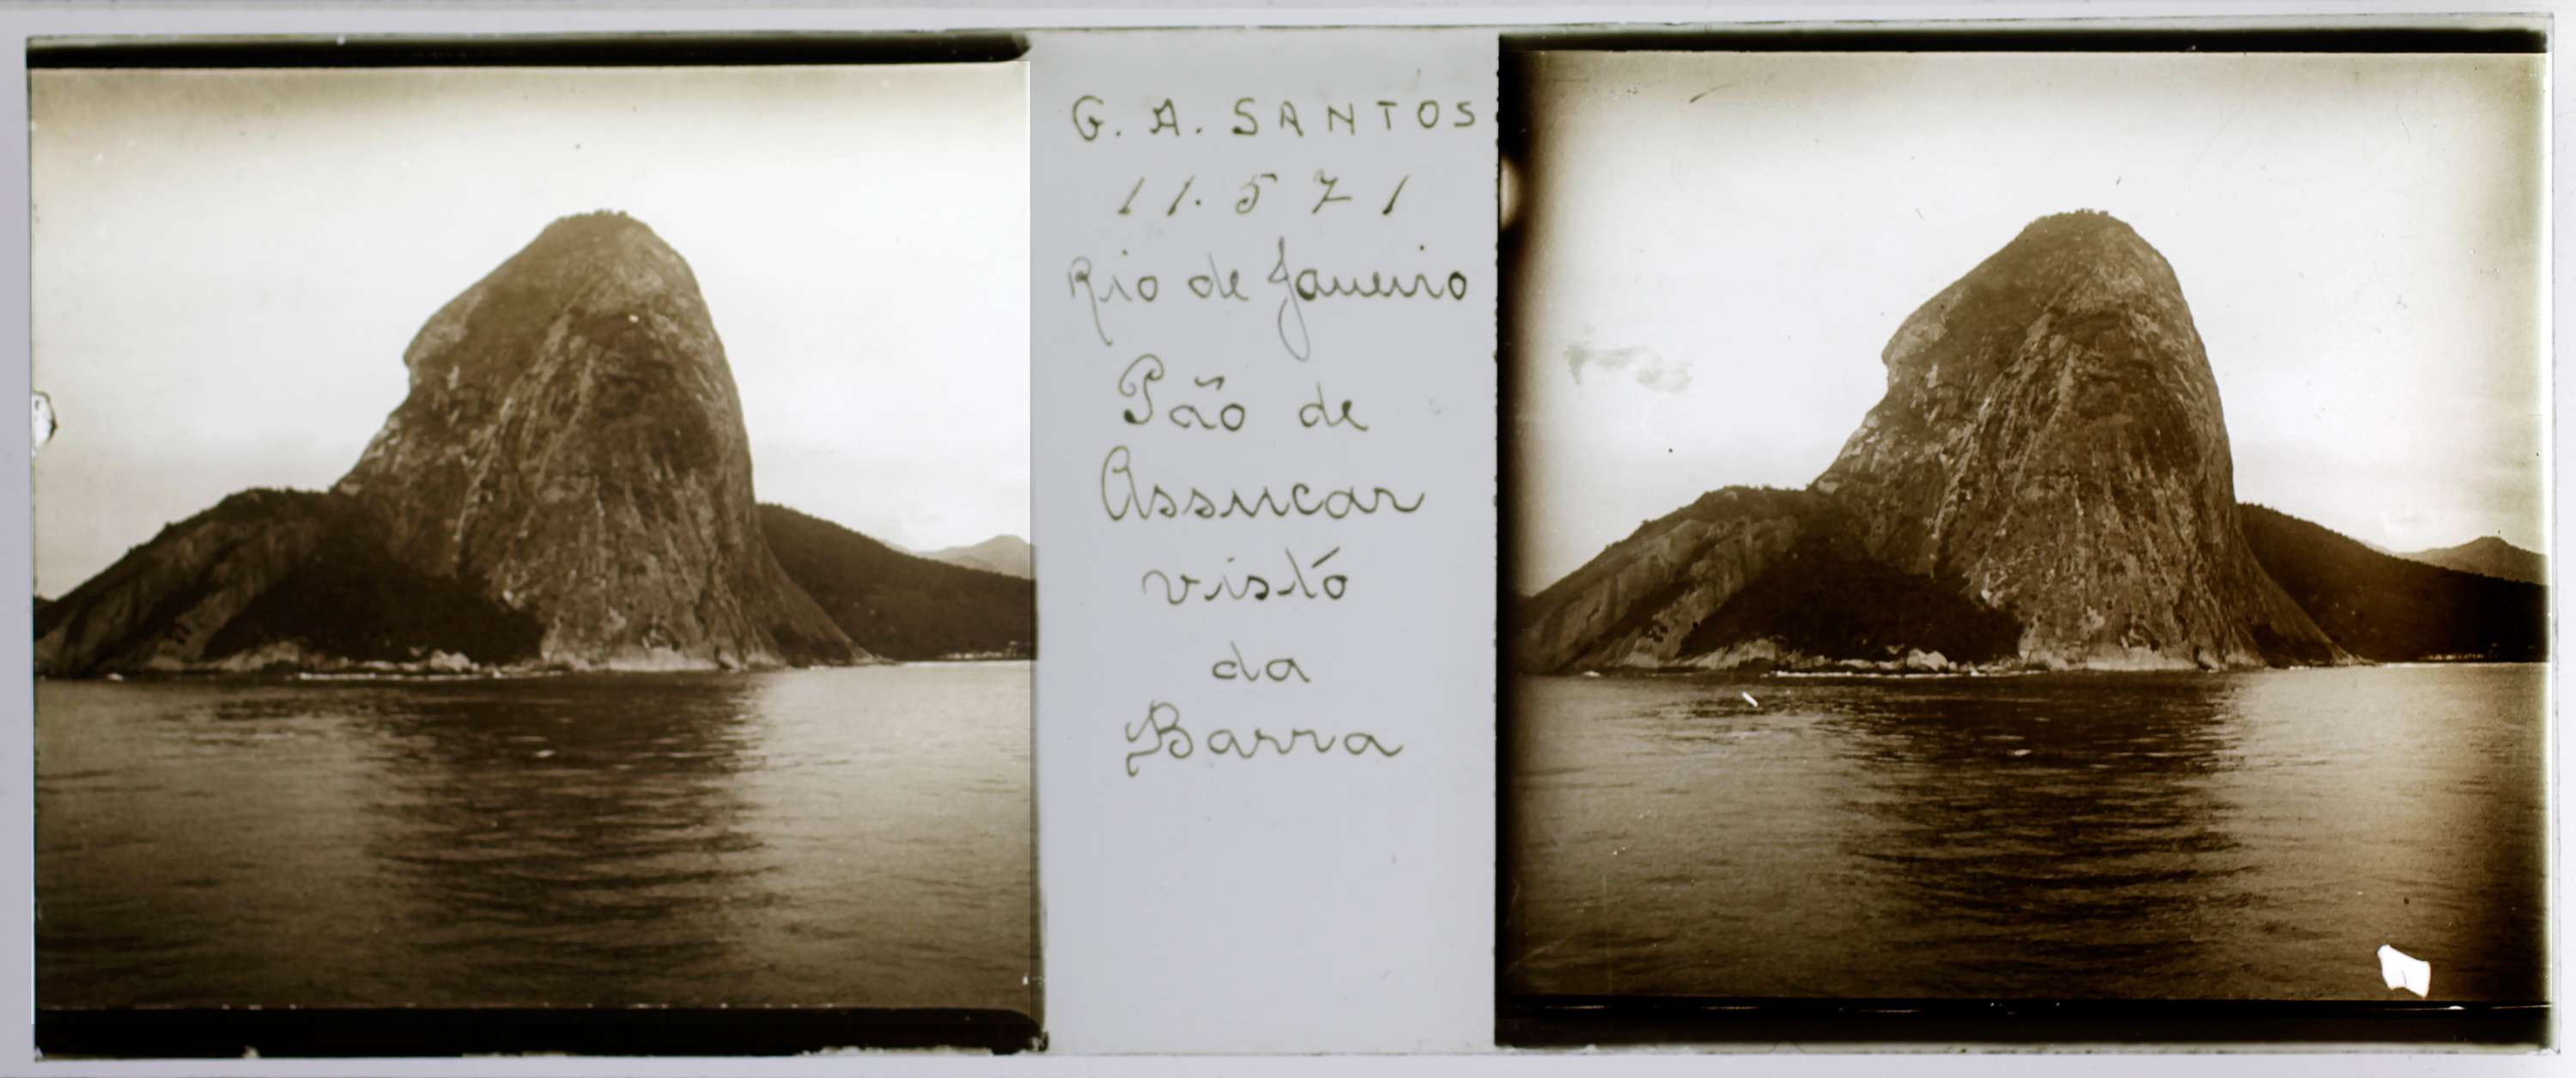 G. A. SANTOS
11.571
Rio de Janeiro
Pão de
Assucar
visto
da
Barra